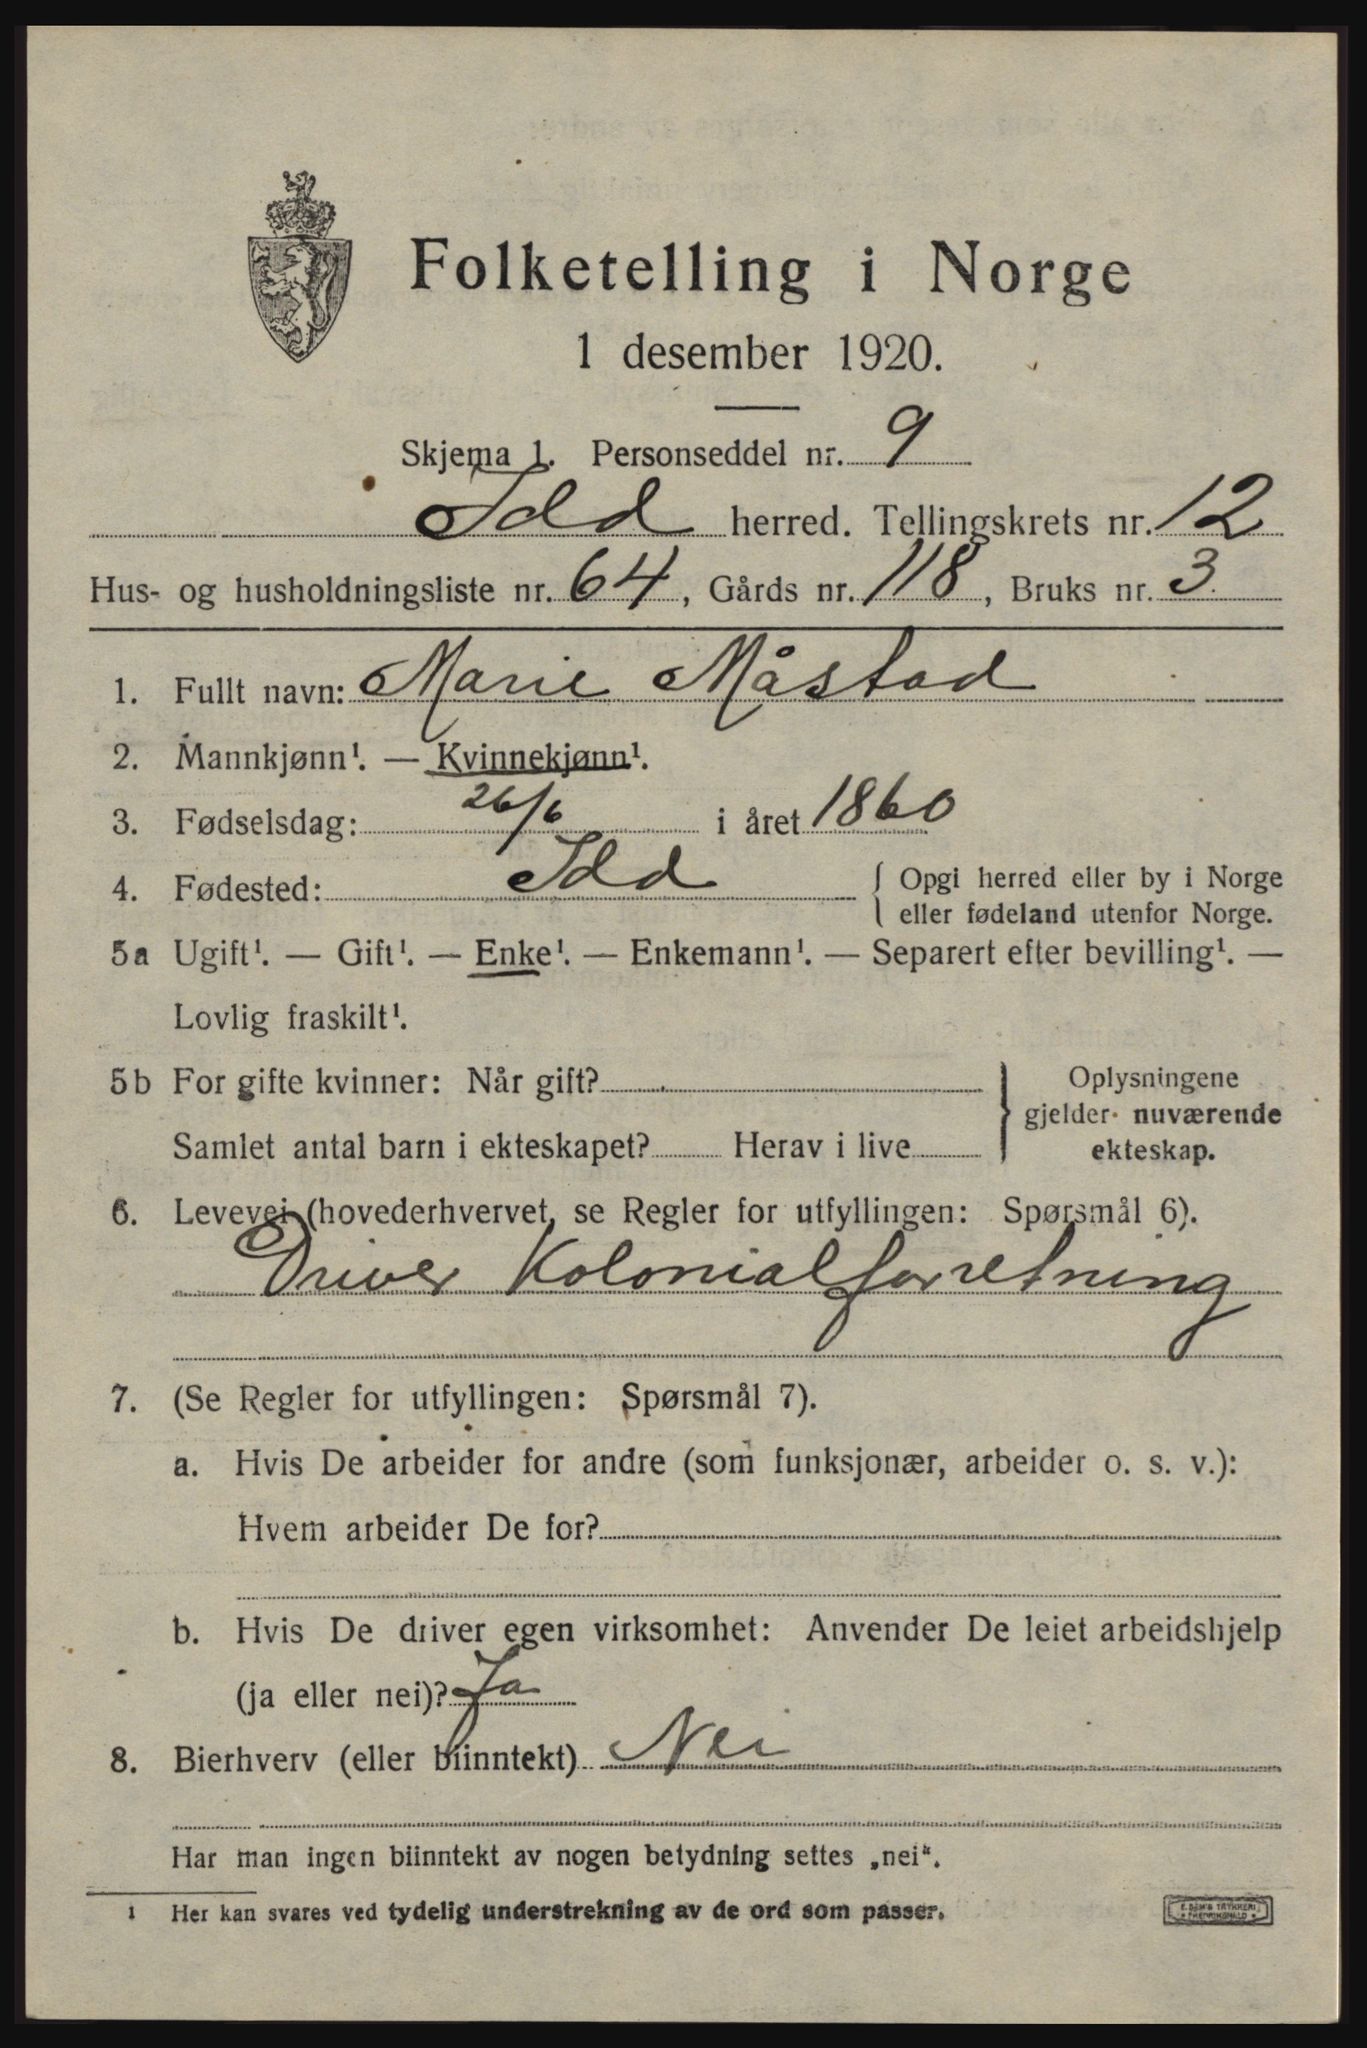 Folketelling i Norge
1 desember 1920.
Skjema 1. Personseddel nr. 9
Idd herred. Tellingskrets nr. 12
Hus- og husholdningsliste nr. 64, Gårds nr. 118, Bruks nr. 3
1. Fullt navn: Marie Måstad
2. Mannkjønn¹. — Kvinnekjønn¹.
3. Fødselsdag: 26/6 i året 1860
4. Fødested: Idd { Opgi herred eller by i Norge
eller fødeland utenfor Norge.
5a Ugift¹. — Gift¹. — Enke¹. — Enkemann¹. — Separert efter bevilling¹. —
Lovlig fraskilt¹.
5b For gifte kvinner: Når gift?
Samlet antal barn i ekteskapet? Herav i live
} Oplysningene
gjelder nuværende
ekteskap.
6. Levevei (hovederhvervet, se Regler for utfyllingen: Spørsmål 6).
Driver Kolonialforretning
7. (Se Regler for utfyllingen: Spørsmål 7).
a. Hvis De arbeider for andre (som funksjonær, arbeider o. s. v.):
Hvem arbeider De for?
b. Hvis De driver egen virksomhet: Anvender De leiet arbeidshjelp
(ja eller nei)? Ja
8. Bierhverv (eller biinntekt) Nei
Har man ingen biinntekt av nogen betydning settes „nei“.
¹ Her kan svares ved tydelig understrekning av de ord som passer.
E. SEM'S TRYKKERI
FREDRIKSHALD